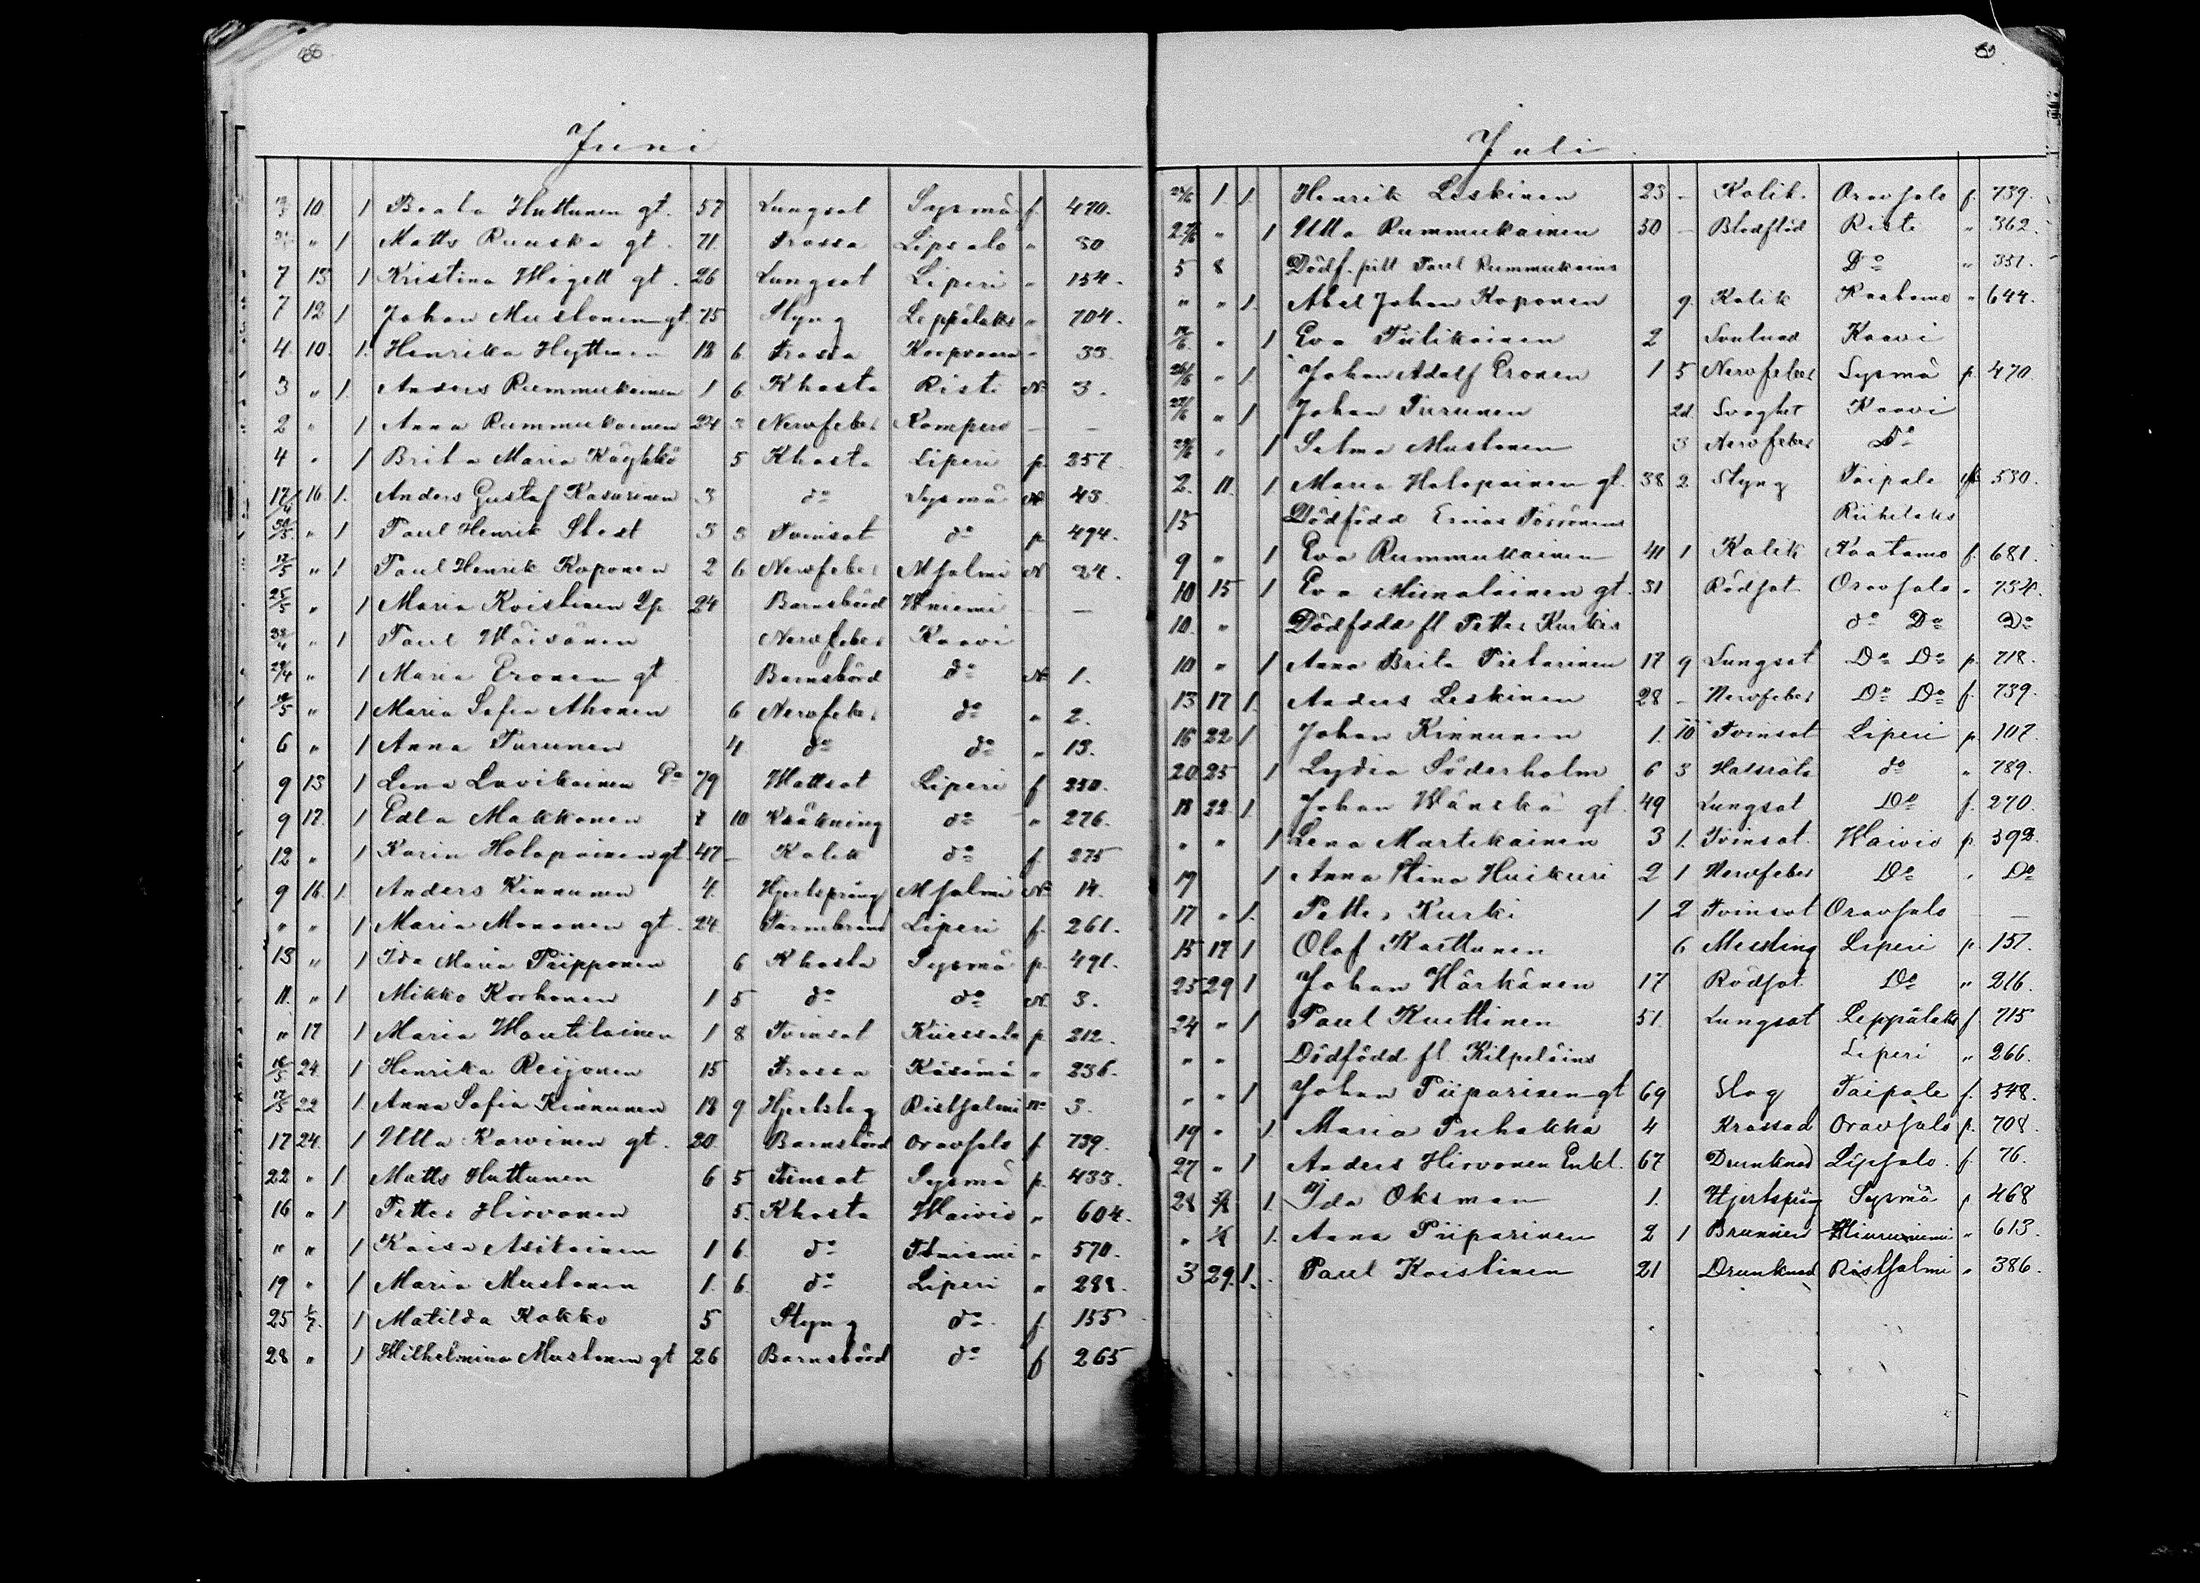 88
Juni
3 10 1 Beata Huttunen gt. 57 Lungsot Sysmä f 470.
" 1 Matts Ruuska gt. 71 Frossa Lipsalo " 80
7 13 1 Kristina Wigell gt. 26 Lungsot Liperi " 154.
7 12 1 Johan Mustonen gt. 75 Styng Leppälaks " 704.
4 10. 1. Henrika Hyttinen 18 6 Frossa Korpivaara " 33
3 " 1 Anders Rummukainen 1 6 Khosta Risti N 3.
2 " 1 Anna Rummukainen 24 3 Nervfeber Kompero — —
4 " 1 Brita Maria Käyhkö 5 Khosta Liperi p. 257
17/4 16 1. Anders Gustaf Kasurinen 3 do Sysmä N 43.
30/5 " 1 Paul Henrik Skast 3 3 Tvinsot do p 494.
12/5 " 1 Paul Henrik Koponen 2 6 Nervfeber Mjalmi N 24.
25/5 " 1 Maria Koistinen Lp 24 Barnsbörd Wniemi — —
" 1 Paul Wäisänen Nervfeber Kaavi
29/4 " 1 Maria Eronen gt Barnsbörd do N 1.
18/5 " 1 Maria Sofia Ahonen 6 Nervfeber do " 2.
6 " 1 Anna Turunen 4 do do " 13.
9 13 1 Lena Lavikainen Pa 79 Wattsot Liperi f 250.
9 12. 1 Edla Makkonen 7 10 Kräkning do " 276.
12 " 1 Karin Holopainen gt 47 — Kolik do f 275
9 16 1. Anders Kinnunen 4. Hjertspräng Mjalmi N 14.
" " 1 Maria Mononen gt. 24 Tarmbrand Liperi f. 261.
13 " 1 Ida Maria Piipponen 6 Khosta Sysmä p. 491.
11. " 1 Mikko Korhonen 1 5 do do N. 3.
" 17 1 Maria Wautilainen 1 8 Tvinsot Kiessalo p 212.
16/5 24. 1 Henrika Reijonen 15 Frossa Käsämä " 236.
12/5 22 1 Anna Sofia Kinnunen 18 9 Hjertslag Ristjalmi No 3.
17 24. 1 Ulla Karvinen gt. 20 Barnsbörd Oravsalo f 739.
22 " 1 Matts Huttunen 6 5 Tvinsot Sysmä p. 433.
16 " 1 Petter Hirvonen 5. Khosta Waivio " 604.
" " 1 Kaisa Asikainen 1 6. do " 570.
19 " 1 Maria Mustonen 1. 6. do Liperi " 288.
25 1/7 1 Matilda Kokko 5 Styng do f 155
28 " 1 Wilhelmina Mustonen gt 26 Barnsbörd do f 265
89
Juli
24/6 1 1 Henrik Leskinen 23 — Kolik. Oravsalo f. 739.
27/6 " 1 Ulla Rummukainen 50 — Blodflöd Risti " 362.
5 8 Dödf. pilt Paul Rummukains Do " 351.
" " 1. Abel Johan Koponen 9. Kolik Kaatamo " 644.
" 1 Eva Tulikainen 2 Svulnad Kaavi
26/6 " 1 Johan Adolf Eronen 1 5 Nervfeber Sysmä p. 470.
27/6 " 1 Johan Turunen 2d Svaghet Kaavi
29/6 " 1 Selma Mustonen 3 Nervfeber Do
2. 11. 1 Maria Holopainen gt. 38 2 Styng Taipale 530.
15 Dödfödd Ernas Törrönens Riihilaks
9 " 1 Eva Rummukainen 41 1 Kolik Kaatamo f. 681.
10 15 1 Eva Miinalainen gt. 31 Rödsot Oravsalo " 734.
10. " Dödfödd fl. Petter Kurkis do Do Do
10 " 1 Anna Brita Pietarinen 17 9 Lungsot Do Do p. 718.
13 17 1. Anders Leskinen 28 — Nervfeber Do Do f. 739.
16 22 1 Johan Kinnunen 1. 10 Tvinsot Liperi p. 107.
20 25 1 Lydia Söderholm 6 3 Halsröta do " 789.
18 22 1 Johan Wänskä gt. 49 Lungsot Do f. 270.
" " 1 Lena Martikainen 3 1. Tvinsot. Waivio p. 392.
19 1 Anna Stina Huikuri 2 1 Nervfeber Do " Do
17 " 1. Petter Kurki 1 2 Tvinsot Oravsalo — —
15 17 1 Olof Karttunen 6 Messling Liperi p. 157.
25 29 1 Johan Härkänen 17 Rödsot Do " 216.
24 " 1 Paul Kuittinen 51 Lungsot Leppälaks f 715
" " Dödfödd fl. Kilpeläins Liperi " 266.
" " 1 Johan Piiparinen gt 69 Slag Taipale f. 548.
19 " 1. Maria Puhakka 4 Krossad Oravsalo p. 708.
27 " 1 Anders Hirvonen Enkl. 67 Drunknad Lipsalo. f. 76.
28 5/8 1. Ida Oksman 1. Hjertspräng Sysmä p 468
" 1. Anna Piiparinen 2 1 Bränner " 613.
3 29. 1. Paul Koistinen 21 Drunknad Ristjalmi " 386.